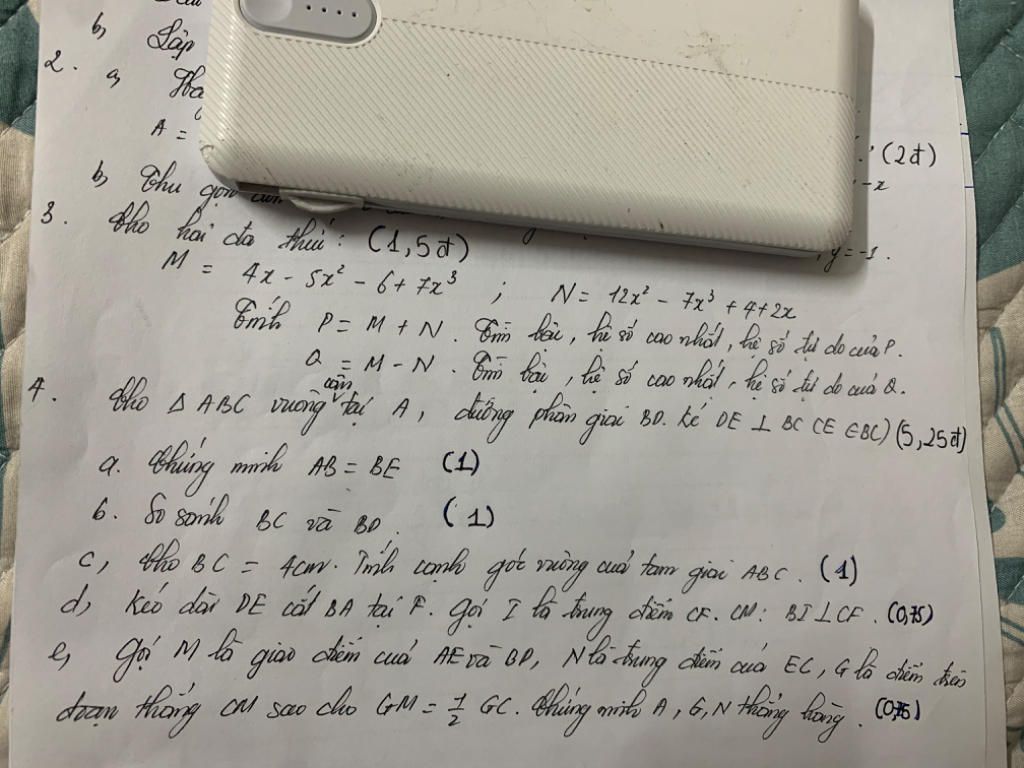 b, Lập
2. a,
A = (2đ)
-x
b, Thu gọn y = -1.
3. Cho hai đa thức: (1,5đ)
M = 4x - 5x² - 6 + 7x³ ; N = 12x² - 7x³ + 4 + 2x
Tính P = M + N. Tìm bậc, hệ số cao nhất, hệ số tự do của P.
Q = M - N. Tìm bậc, hệ số cao nhất, hệ số tự do của Q.
4. Cho Δ ABC vuông cân tại A, đường phân giác BD. Kẻ DE ⊥ BC (E ∈ BC) (5,25đ)
a. Chứng minh AB = BE (1)
b. So sánh BC và BD. (1)
c, Cho BC = 4cm. Tính cạnh góc vuông của tam giác ABC. (1)
d, Kéo dài DE cắt BA tại F. Gọi I là trung điểm CF. CM: BI ⊥ CF. (0,75)
e, Gọi M là giao điểm của AE và BD, N là trung điểm của EC, G là điểm trên
đoạn thẳng CM sao cho GM = ½ GC. Chứng minh A, G, N thẳng hàng. (0,75)